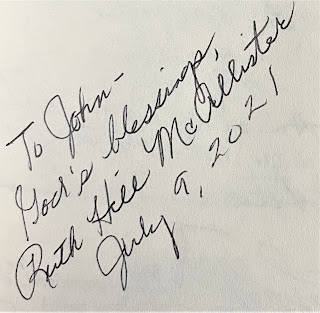 To John-
God's blessings,
Ruth Hill McAllister
July 9, 2021